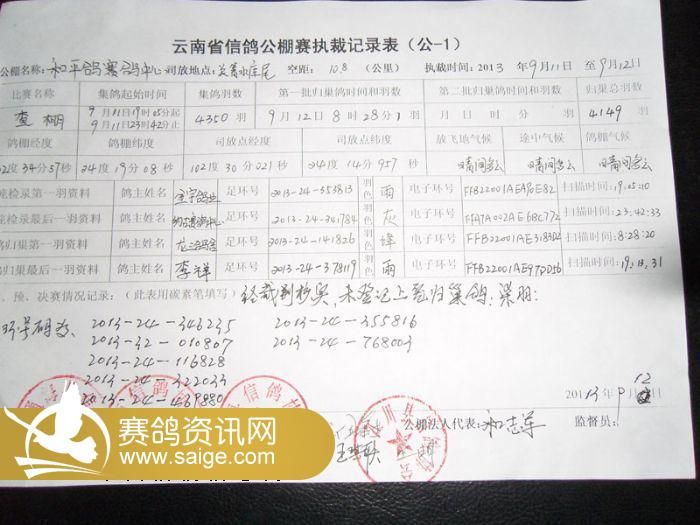 云南省信鸽公棚赛执裁记录表（公-1）
公棚名称：和平鸽赛鸽中心 司放地点： 空距：10.8（公里） 执裁时间：2013年9月11日至9月12日
比赛名称 集鸽起始时间 集鸽羽数 第一批归巢鸽时间和羽数 第二批归巢鸽时间和羽数 归巢总羽数
查棚 9月11日19时05分起 9月11日23时42分止 4350羽 9月12日8时28分1羽 月日时分羽 4149羽
鸽棚经度 鸽棚纬度 司放点经度 司放点纬度 放飞地气候 途中气候 鸽棚气候
02度34分57秒 24度19分08秒 102度30分021秒 24度14分957秒 晴间多云 晴间多云 晴间多云
检录第一羽资料 鸽主姓名 足环号 2013-24-353813 羽色 雨 电子环号 扫描时间：19:05:10
检录最后一羽资料 鸽主姓名 足环号 2013-24-341784 羽色 灰 电子环号 FFA7A002AE6BC772 扫描时间：23:42:33
归巢第一羽资料 鸽主姓名 足环号 2013-24-141826 羽色 绛 电子环号 扫描时间：8:28:20
归巢最后一羽资料 鸽主姓名 李祥 足环号 2013-24-378119 羽色 雨 电子环号 扫描时间：19:18:31
、预、决赛情况记录：（此表用碳素笔填写）经裁判核实，未登记上笼归巢鸽：染羽：
环号码为：2013-24-346235 2013-24-355816
2013-32-010807 2013-24-768003
2013-24-116828
2013-24-322033
2013-24-439880
2013年9月12日
公棚法人代表：和志军 监督员：
赛鸽资讯网
www.saige.com